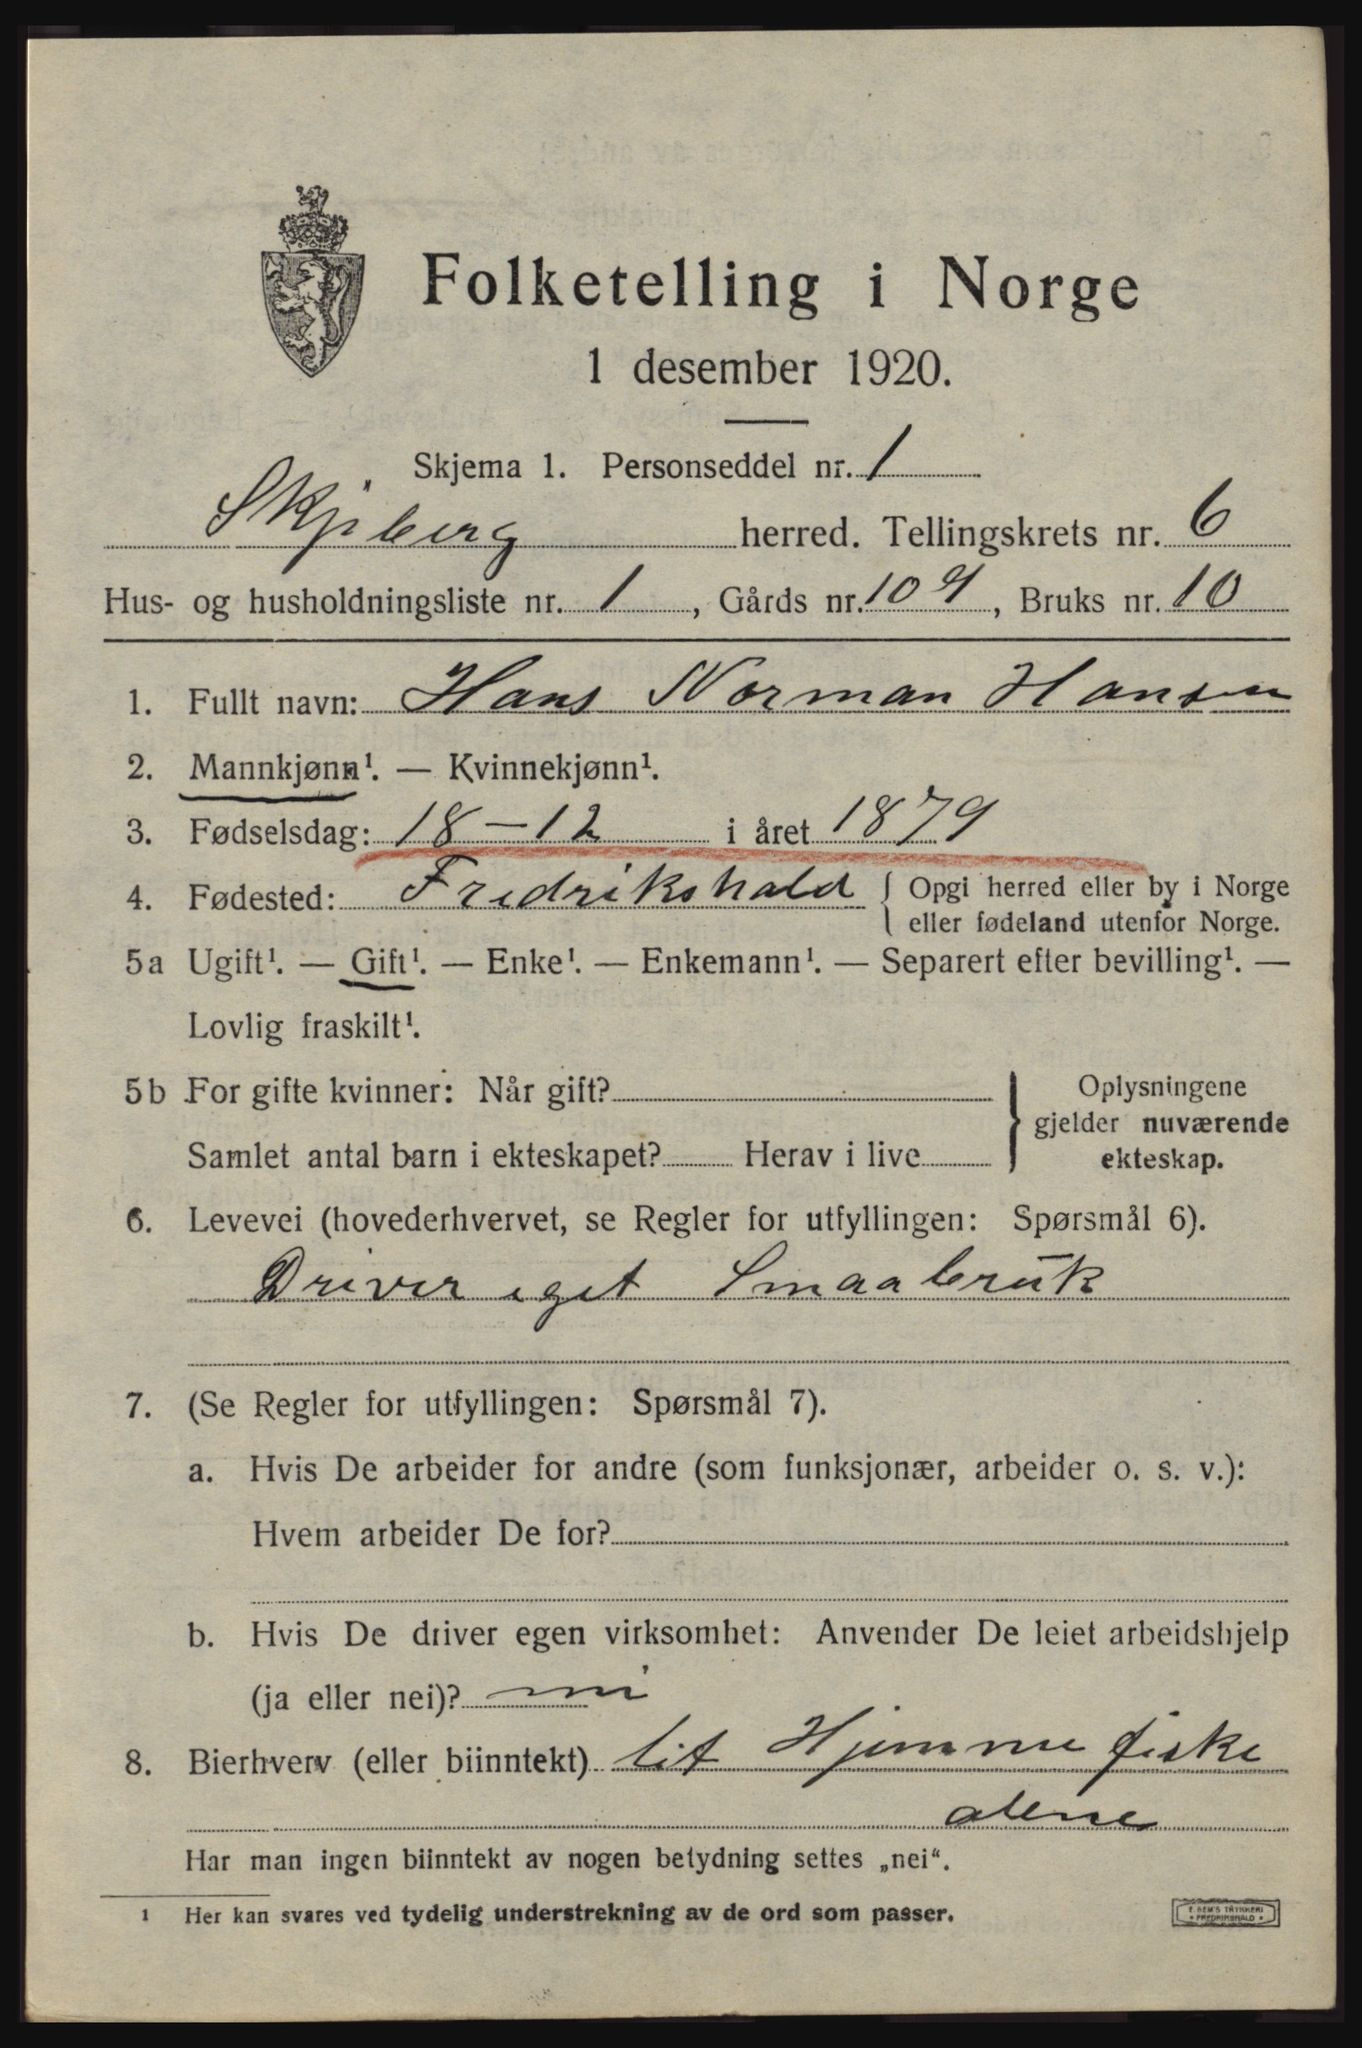 Folketelling i Norge
1 desember 1920.
Skjema 1. Personseddel nr. 1
Skjeberg herred. Tellingskrets nr. 6
Hus- og husholdningsliste nr. 1, Gårds nr. 109, Bruks nr. 10
1. Fullt navn: Hans Norman Hansen
2. Mannkjønn¹. — Kvinnekjønn¹.
3. Fødselsdag: 18-12 i året 1879
4. Fødested: Fredrikshald { Opgi herred eller by i Norge
eller fødeland utenfor Norge.
5a Ugift¹. — Gift¹. — Enke¹. — Enkemann¹. — Separert efter bevilling¹. —
Lovlig fraskilt¹.
5b For gifte kvinner: Når gift? } Oplysningene
gjelder nuværende
Samlet antal barn i ekteskapet? Herav i live ekteskap.
6. Levevei (hovederhvervet, se Regler for utfyllingen: Spørsmål 6).
Driver eget Smaabruk
7. (Se Regler for utfyllingen: Spørsmål 7).
a. Hvis De arbeider for andre (som funksjonær, arbeider o. s. v.):
Hvem arbeider De for?
b. Hvis De driver egen virksomhet: Anvender De leiet arbeidshjelp
(ja eller nei)? nei
8. Bierhverv (eller biinntekt) lit Hjemme fiske
alene
Har man ingen biinntekt av nogen betydning settes „nei“.
1 Her kan svares ved tydelig understrekning av de ord som passer.
E. SEM'S TRYKKERI
• FREDRIKSHALD •